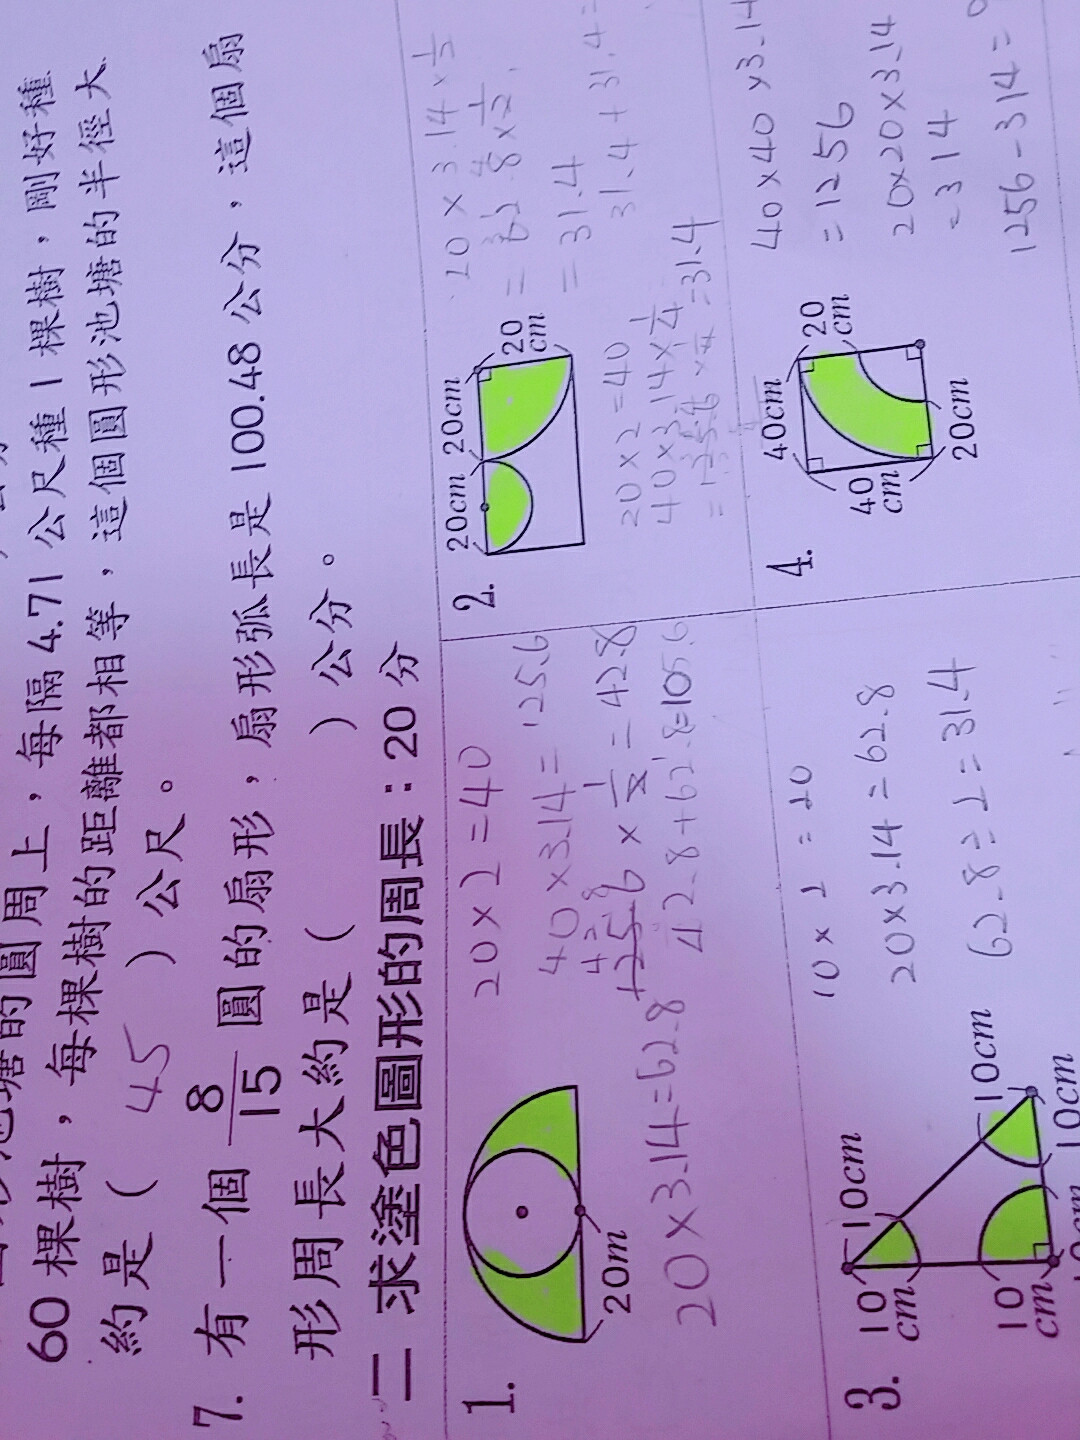 60 棵樹，每棵樹的距離都相等，這個圓形池塘的半徑大
約是（ 45 ）公尺。
7. 有一個 8/15 圓的扇形，扇形弧長是 100.48 公分，這個扇
形周長大約是（ ）公分。
二 求塗色圖形的周長：20 分
1.
20m
20×2=40
40×3.14=125.6
125.6×1/2=42.8
42.8+62.8=105.6
20×3.14=62.8
2.
20cm 20cm
20
cm
20×3.14×1/2
=62.8×1/2
=31.4
31.4+31.4=
20×2=40
40×3.14×1/4
=125.6×1/4=31.4
3.
10cm
10
cm
10cm
10
cm
10cm
10×2=20
20×3.14=62.8
62.8÷2=31.4
4.
40cm
20
cm
40
cm
20cm
40×40×3.14
=1256
20×20×3.14
=314
1256-314=